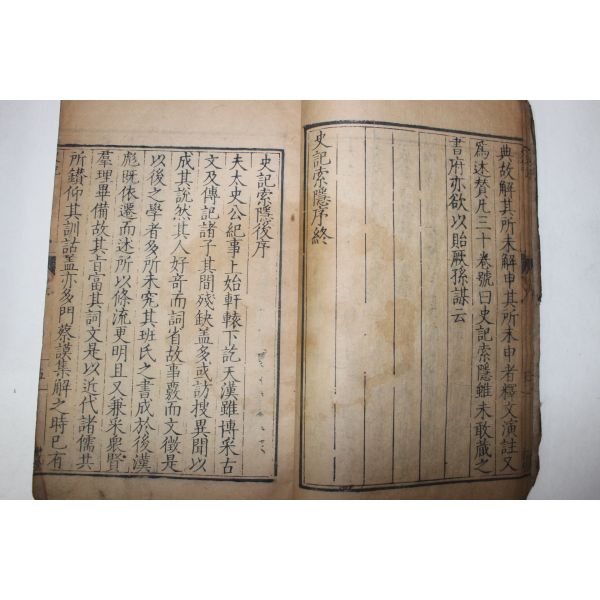 典故解其所未解申其所未申者釋文演註又
爲述贊凡三十卷號曰史記索隱雖未敢藏之
書府亦欲以貽厥孫謀云
史記索隱序終
史記索隱後序
夫太史公紀事上始軒轅下訖天漢雖博采古
文及傳記諸子其間殘缺盖多或訪搜異聞以
成其說然其人好奇而詞省故事覈而文微是
以後之學者多所未究其班氏之書成於後漢
彪旣依遷而述所以條流更明且又兼采衆賢
羣理畢備故其旨富其詞文是以近代諸儒共
所鑽仰其訓詁盖亦多門蔡謨集解之時已有